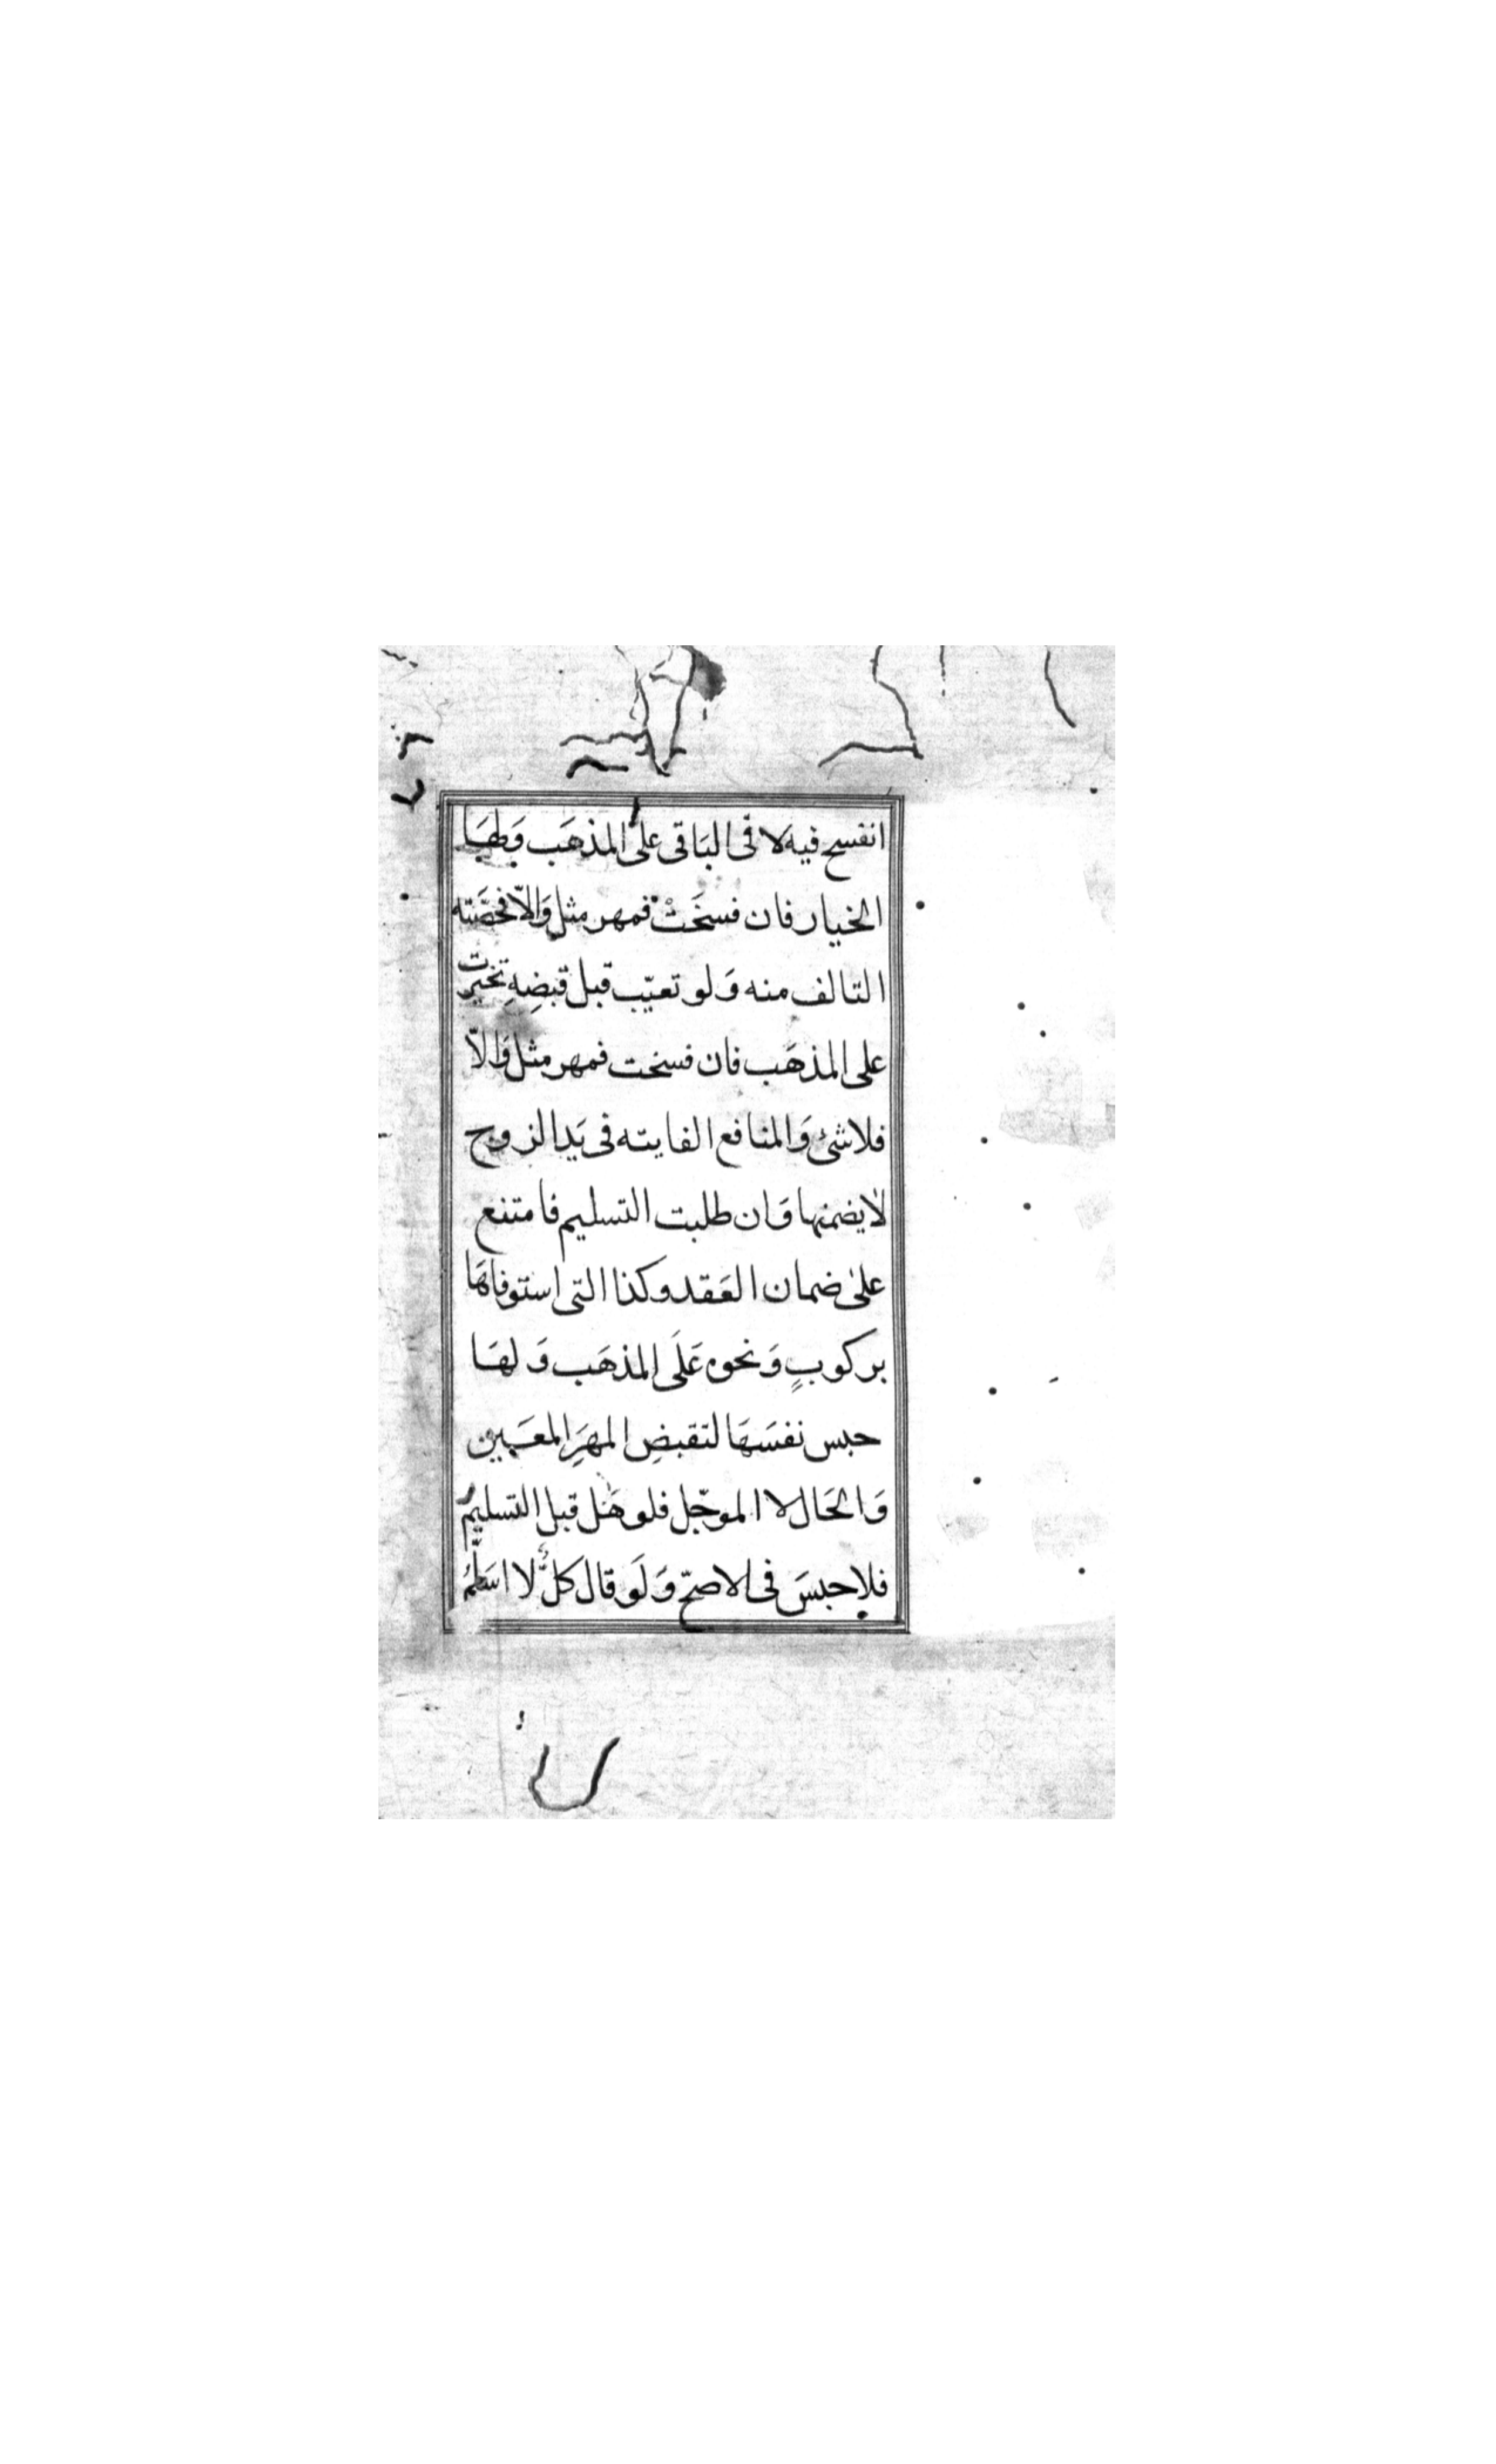 انفسح فيه لا في الباقى على المذهَب وَلهَا
الخيار فان فسخَتْ فمهر مثل وَالّا فحصَّته
التالف منه وَلو تعيّب قبل قبضِهِ تخيّرت
على المذهَب فان فسخت فمهر مثل وَالّا
فلا شئ وَالمنافع الفايته فى يَد الزوج
لا يضمنها وَان طلبت التسليم فامتنع
على ضمان العَقد وكذا التى استوفاهَا
بركوبٍ وَنحوه عَلَى المذهَب وَلهَا
حبس نفسَهَا لتقبضِ المهرَ المعَيين
وَالحَال لا الموجّل فلو حَل قبل التسليم
فلا حبسَ فى الاصحّ وَلَو قال كلٌّ لا اسَلّمُ